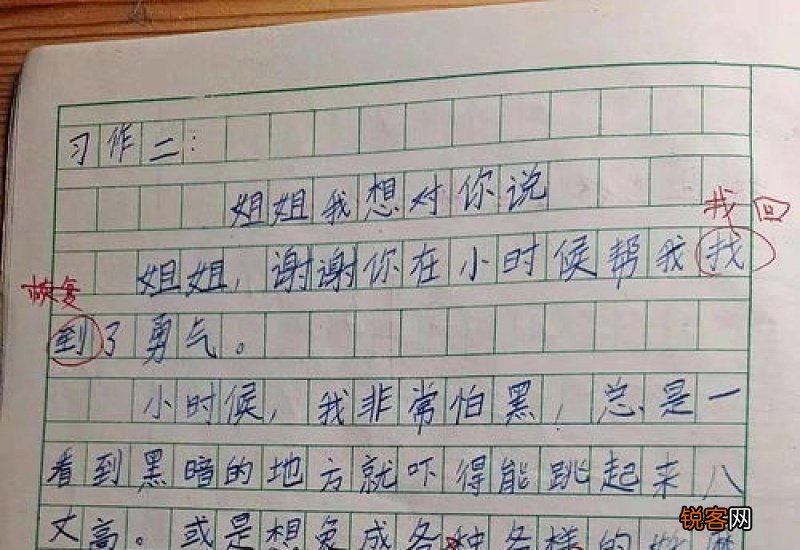 习作二:
姐姐我想对你说
找回
姐姐，谢谢你在小时候帮我找
恢复
到了勇气。
小时候，我非常怕黑，总是一
看到黑暗的地方就吓得能跳起来八
丈高。或是想象成各种各样的
锐客网